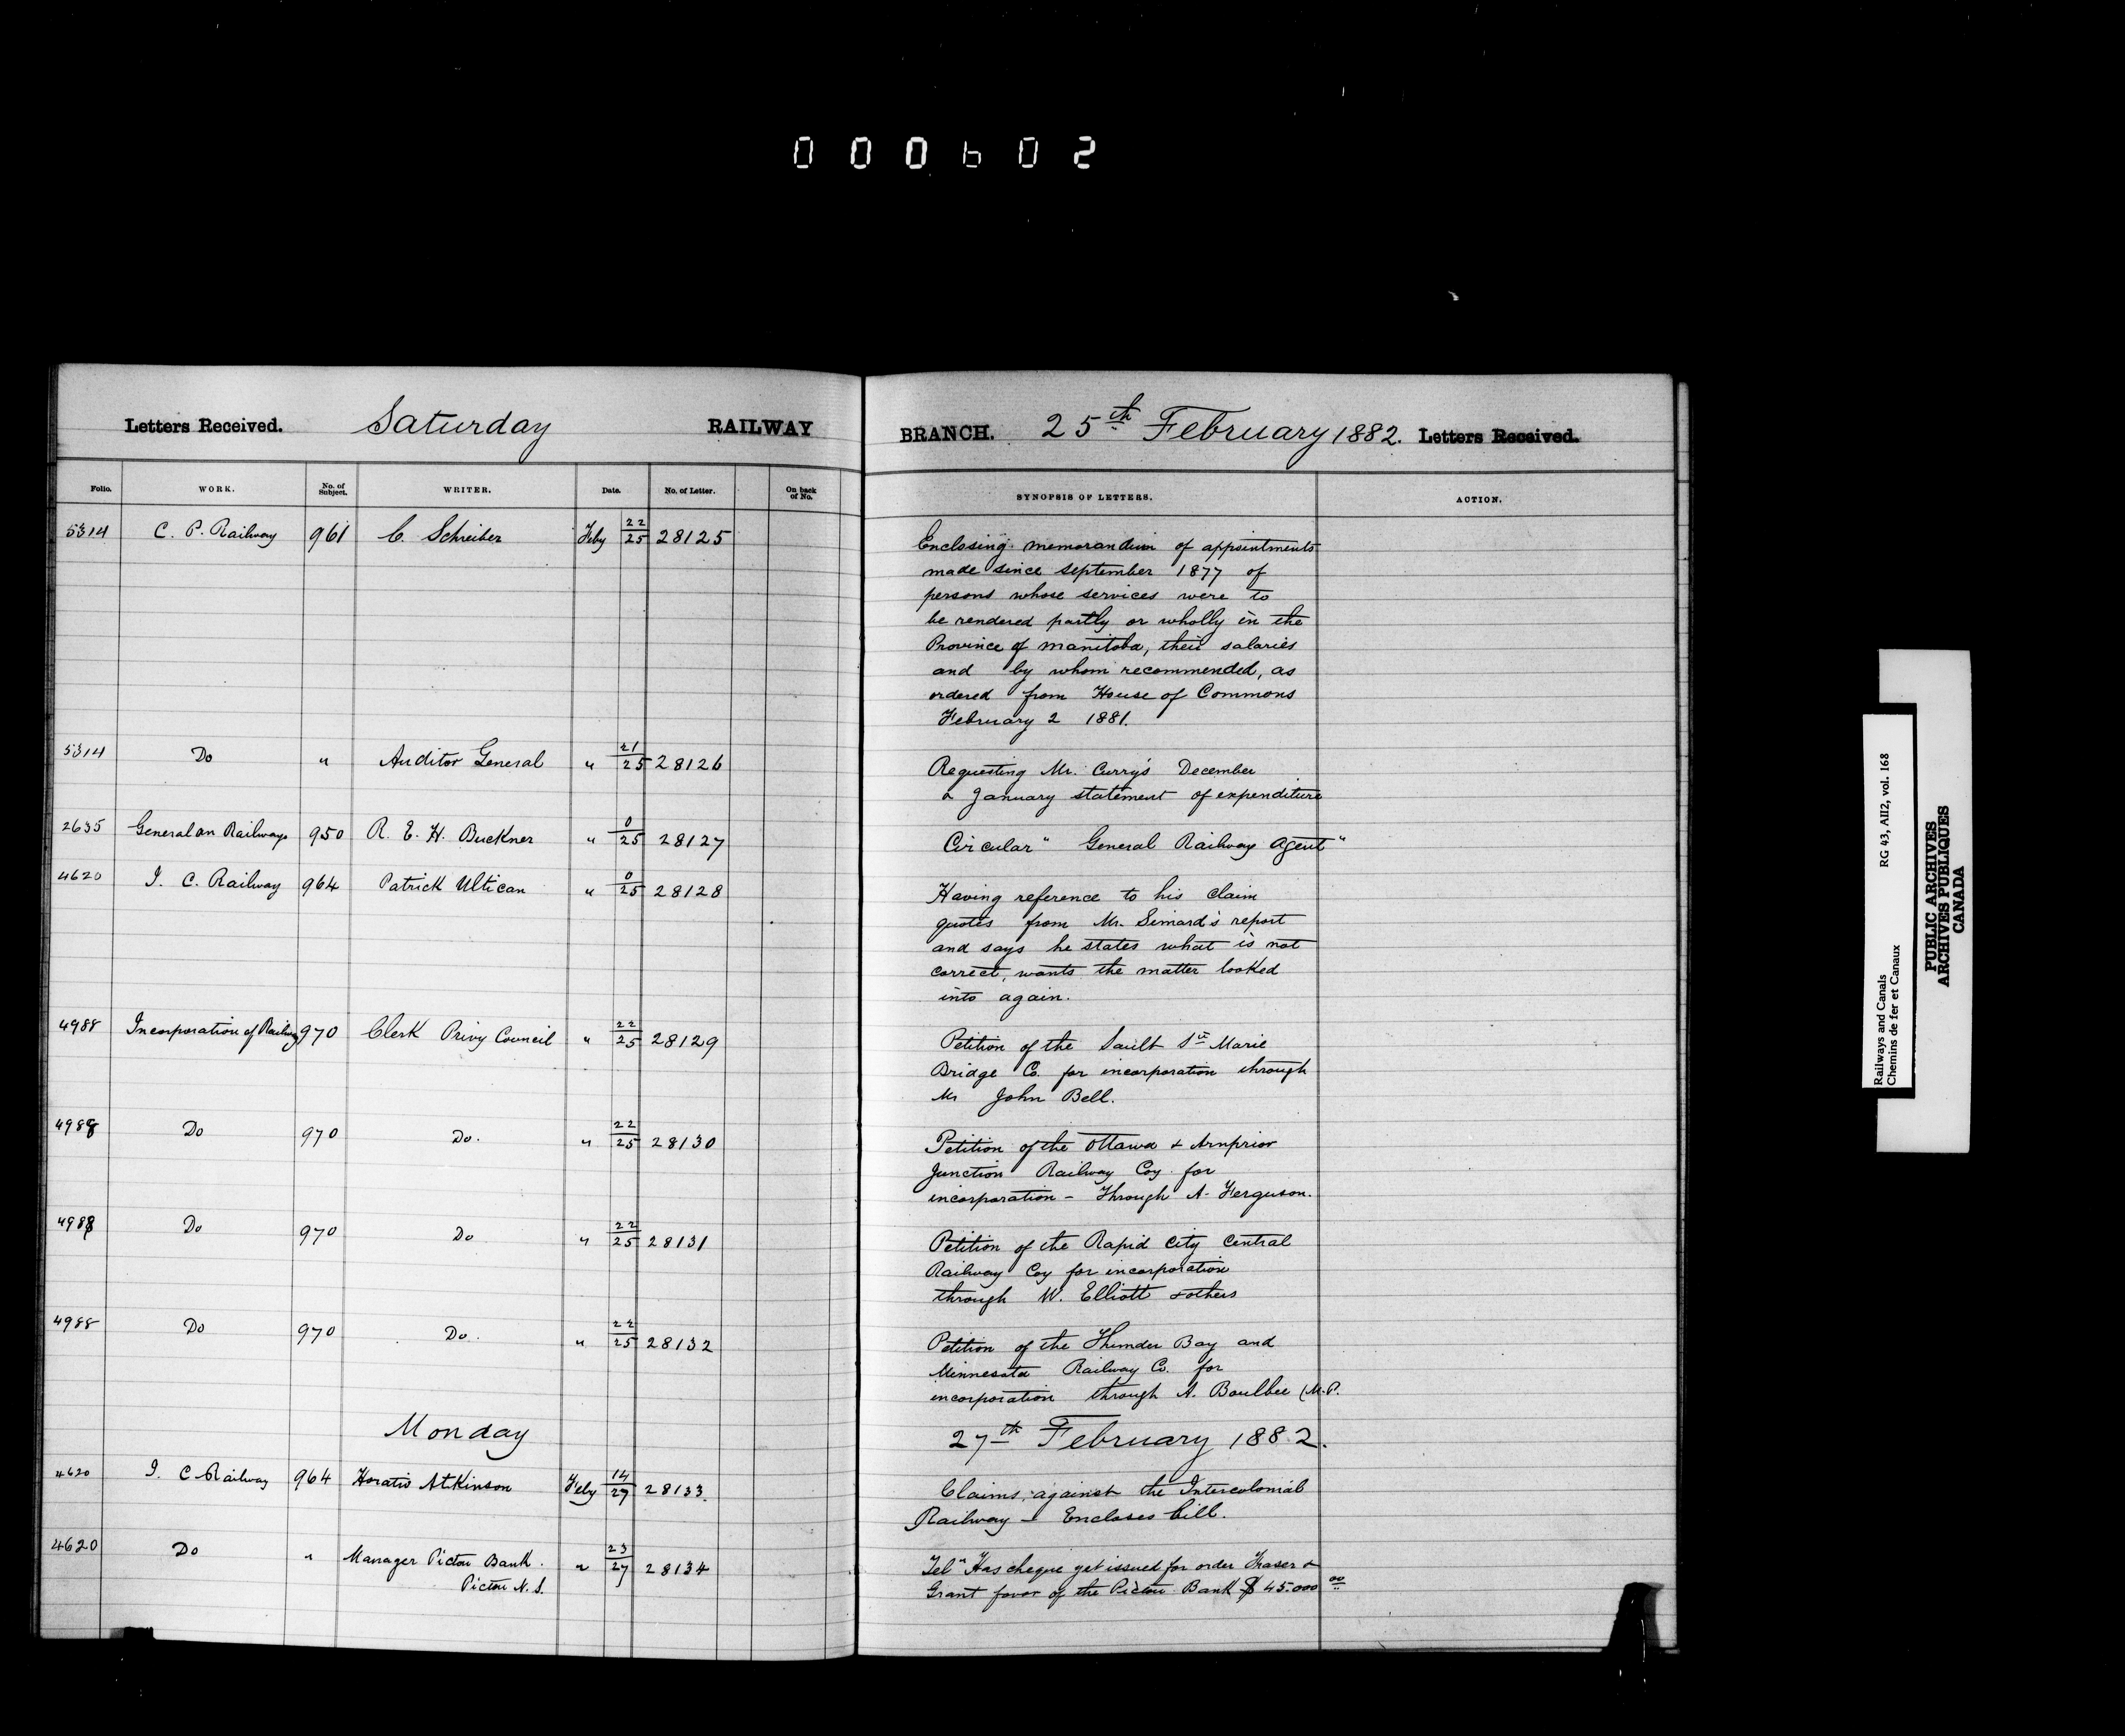 000602
Letters Received. Saturday RAILWAY
Folio. WORK. No. of Subject. WRITER. Date. No. of Letter. On back of No.
5314 C. P. Railway 961 C. Schreiber Feby 22/25 28125
5314 Do " Auditor General " 21/25 28126
2635 General on Railways 950 R. E. H. Buckner " 0/25 28127
4620 I. C. Railway 964 Patrick Ultican " 0/25 28128
4988 Incorporation of Railway 970 Clerk Privy Council " 22/25 28129
4988 Do 970 Do. " 22/25 28130
4988 Do 970 Do " 22/25 28131
4988 Do 970 Do. " 22/25 28132
Monday
4620 I. C Railway 964 Horatio Atkinson Feby 14/27 28133
4620 Do " Manager Pictou Bank. " 23/27 28134
Pictou N.S.
BRANCH. 25th February 1882. Letters Received.
SYNOPSIS OF LETTERS. ACTION.
Enclosing memorandum of appointments
made since September 1877 of
persons whose services were to
be rendered partly or wholly in the
Province of Manitoba, their salaries
and by whom recommended, as
ordered from House of Commons
February 2 1881.
Requesting Mr. Curry's December
& January statement of expenditure
Circular "General Railway Agent"
Having reference to his claim
quotes from Mr. Simard's report
and says he states what is not
correct, wants the matter looked
into again.
Petition of the Sault Ste Marie
Bridge Co. for incorporation through
Mr John Bell.
Petition of the Ottawa & Arnprior
Junction Railway Coy. for
incorporation – Through A. Ferguson.
Petition of the Rapid City Central
Railway Coy for incorporation
through W. Elliott & others
Petition of the Thunder Bay and
Minnesota Railway Co. for
incorporation through A. Boulbee (M.P.
27th February 1882.
Claims against the Intercolonial
Railway – Encloses bill.
Tel" Has cheque yet issued for order Fraser &
Grant favor of the Pictou Bank $45.000 00
Railways and Canals RG 43, AII2, vol. 168
Chemins de fer et Canaux
PUBLIC ARCHIVES
ARCHIVES PUBLIQUES
CANADA